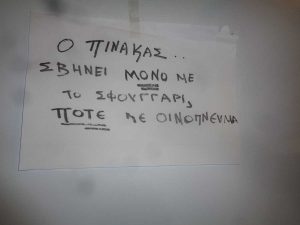 Ο ΠΙΝΑΚΑΣ..
ΣΒΗΝΕΙ ΜΟΝΟ ΜΕ
ΤΟ ΣΦΟΥΓΓΑΡΙ,
ΠΟΤΕ ΜΕ ΟΙΝΟΠΝΕΥΜΑ